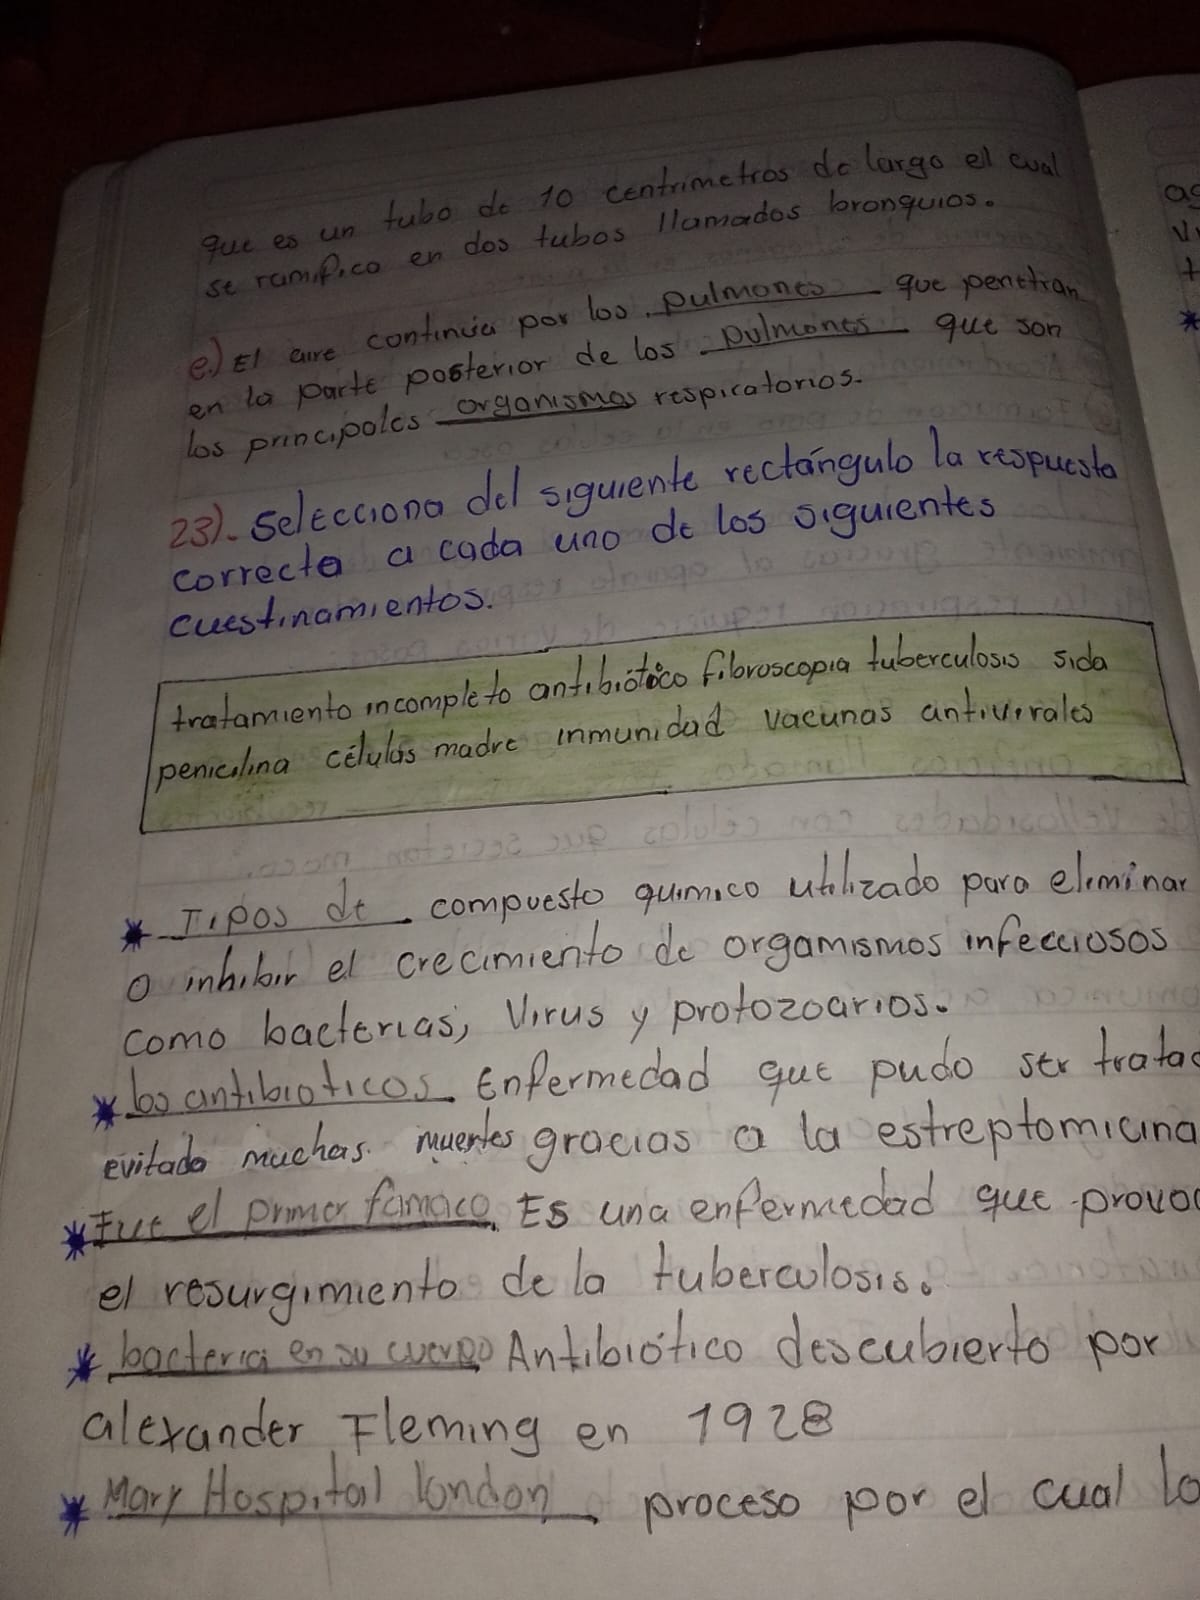 que es un tubo de 10 centrimetros de largo el cual
se ramifica en dos tubos llamados bronquios.
e.) El aire continúa por los pulmones que penetran
en la parte posterior de los pulmones que son
los principales organismos respiratorios.
23). Selecciona del siguiente rectángulo la respuesta
correcta a cada uno de los siguientes
cuestinamientos.
tratamiento incompleto antibiótico fibroscopia tuberculosis sida
penicilina células madre inmunidad vacunas antivirales
* Tipos de. compuesto químico utilizado para eliminar
o inhibir el crecimiento de orgamismos infecciosos
como bacterias, Virus y protozoarios.
* los antibioticos. Enfermedad que pudo ser tratad
evitado muchas. muertes gracias a la estreptomicina
* Fue el primer famaco. Es una enfermedad que provoc
el resurgimiento de la tuberculosis.
* bacteria en su cuerpo Antibiótico descubierto por
alexander Fleming en 1928
* Mary Hospital london proceso por el cual lo